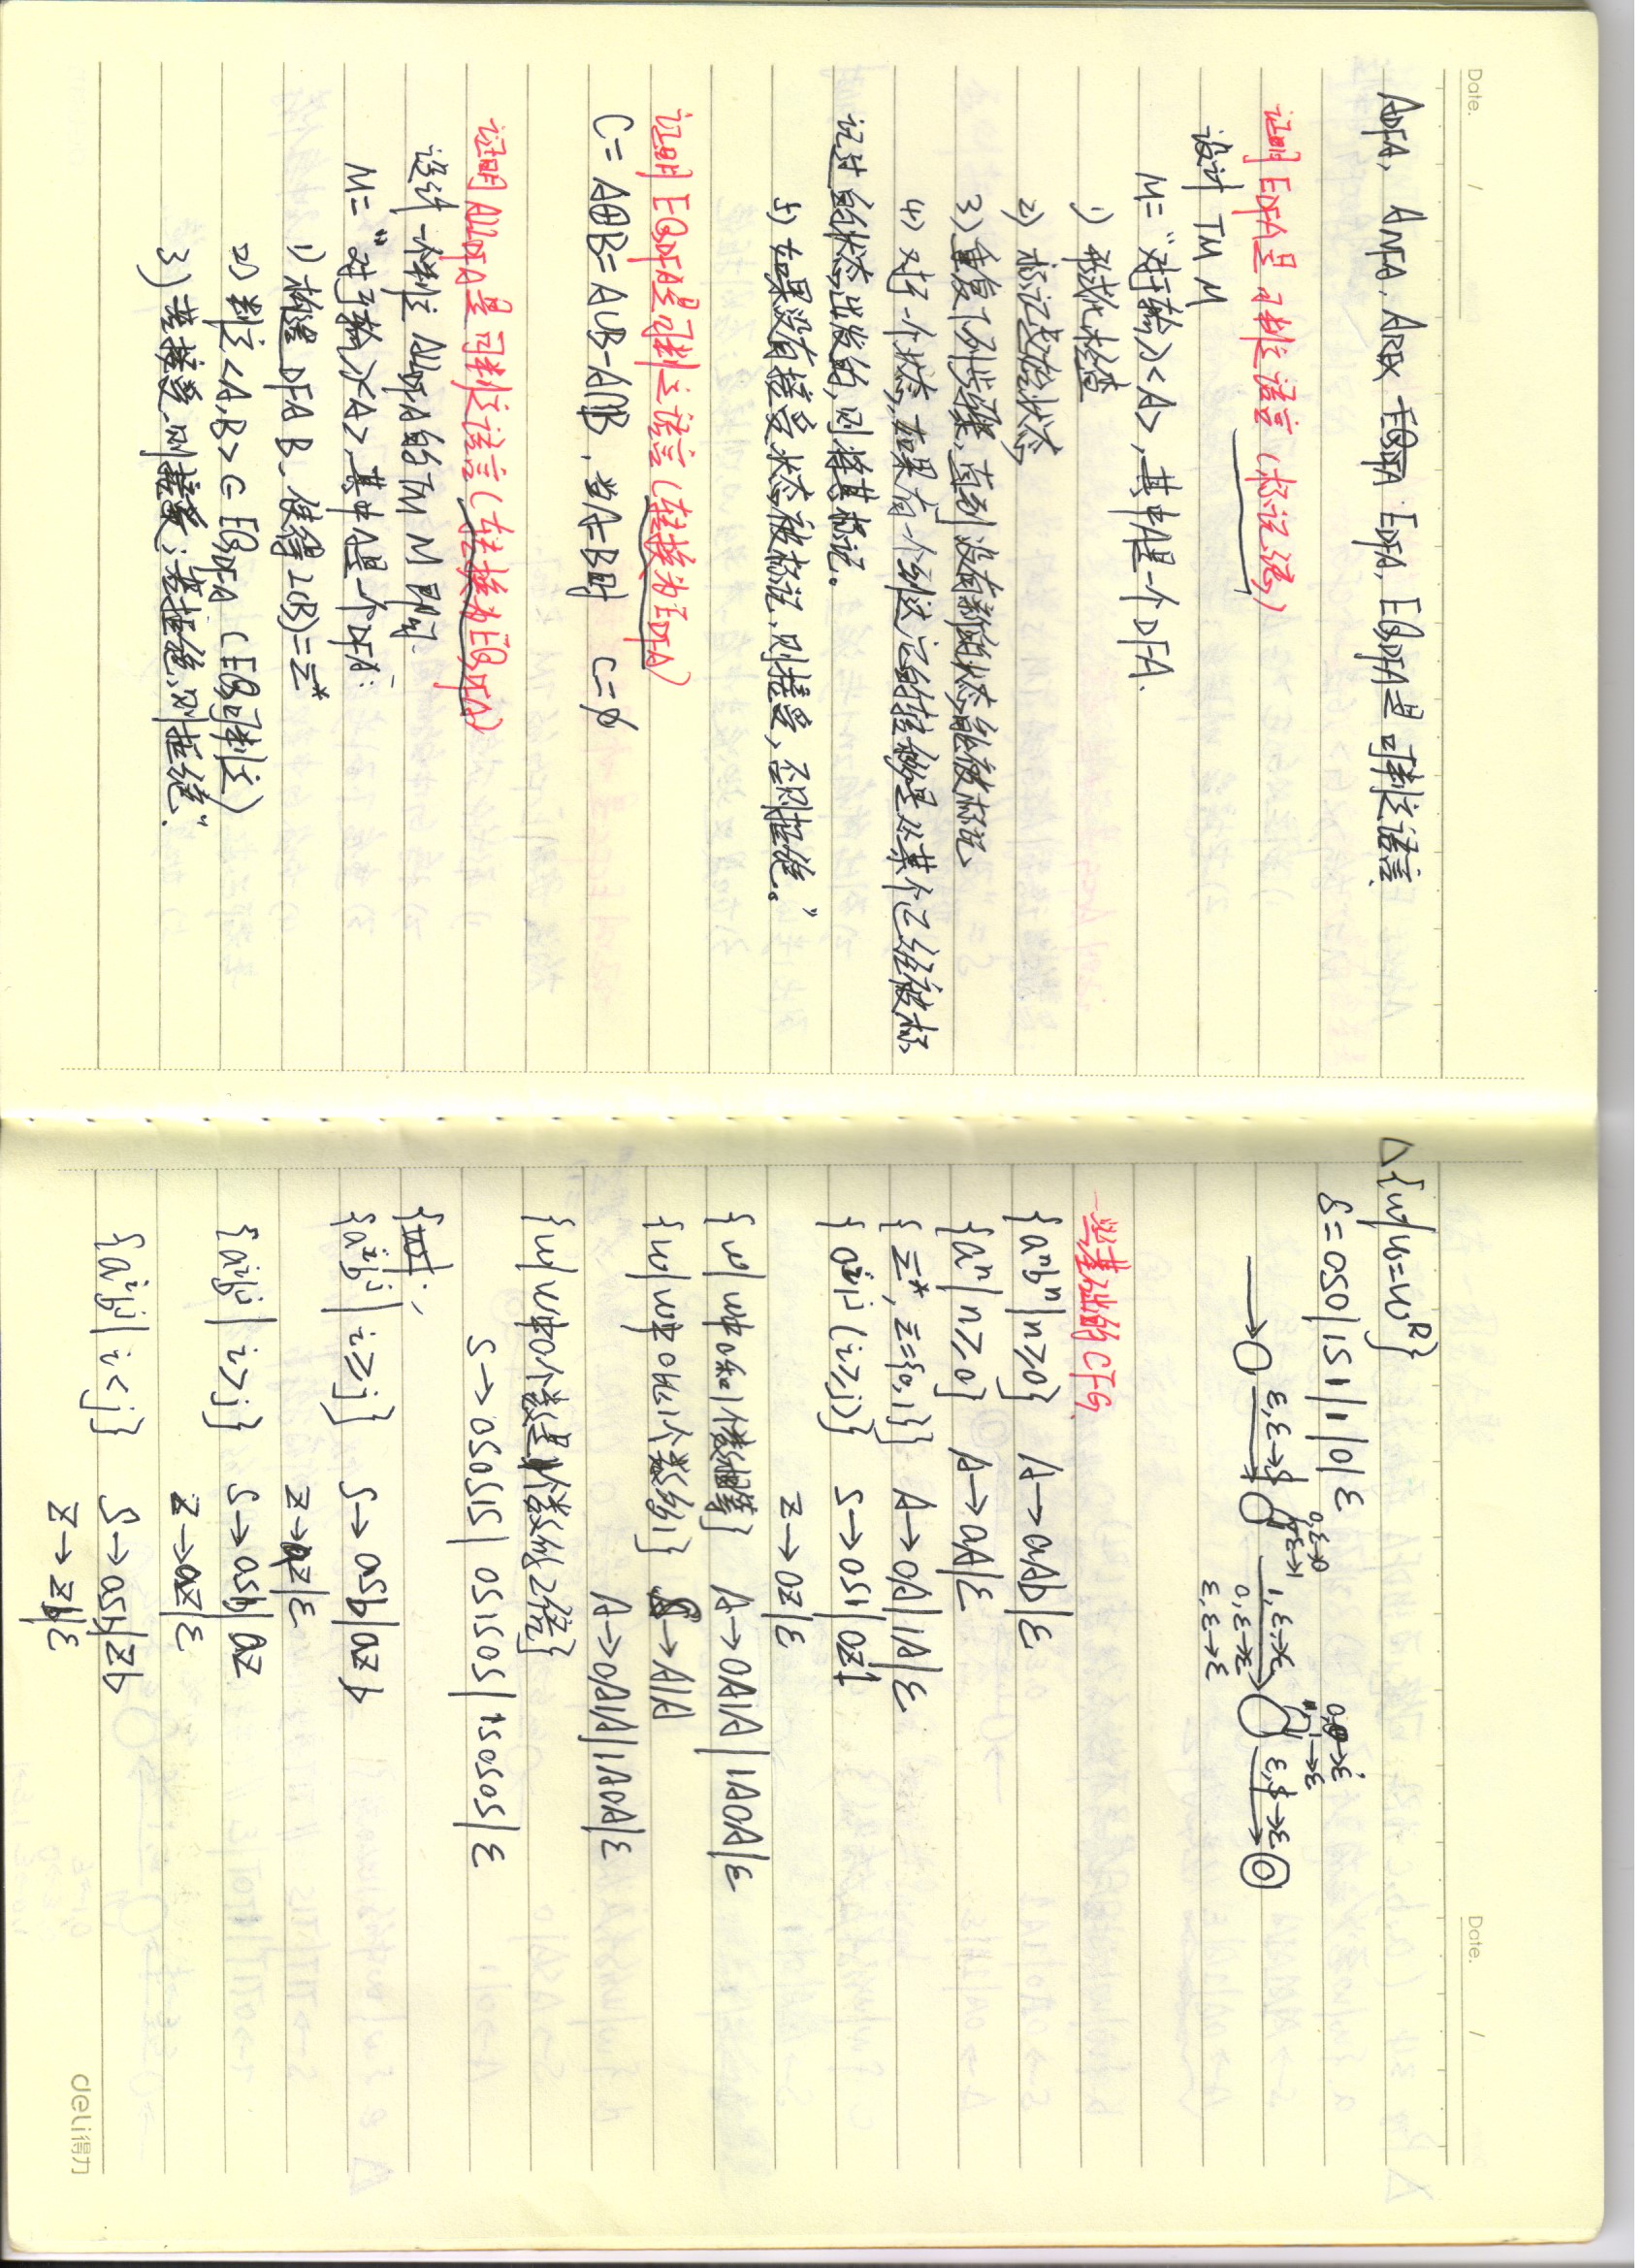 Date. /
A_DFA, A_NFA, A_REX E_DFA, EQ_DFA是可判定语言.
证明E_DFA是可判定语言(标记法)
设计 TM M
M=“对于输入<A>,其中A是一个DFA.
1) 形式化检查
2) 标记起始状态
3) 重复下列步骤,直到没有新的状态能被标记
4) 对于一个状态,如果有一个到达它的转移是从某个已经被标
记过的状态出发的,则将其标记。
5) 如果没有接受状态被标记,则接受,否则拒绝。”
证明EQ_DFA是可判定语言(转换为E_DFA)
C= A⊕B= A∪B-A∩B, 当A=B时 C=∅
证明ALL_DFA是可判定语言(转换为EQ_DFA)
设计一个判定ALL_DFA的TM M即可.
M=“对于输入<A>,其中A是一个DFA:
1) 构造 DFA B, 使得L(B)=Σ*
2) 判定<A,B>∈EQ_DFA (EQ可判定)
3) 若接受,则接受;若拒绝,则拒绝”.
Date. /
△{w|w=w^R}
S=0S0|1S1|1|0|ε
0,ε→0
ε,ε→$
1,ε→ε
0,ε→ε
ε,ε→ε
0,0→ε
1→ε
ε,$→ε
一些基础的CFG.
{a^n b^n|n≥0} A→aAb|ε
{a^n|n≥0} A→aA|ε
{Σ*, Σ={0,1}} A→0A|1A|ε
{0^i 1^j (i≥j)} S→0S1|0Z1
Z→0Z|ε
{w|w中0和1个数相等} A→0A1A|1A0A|ε
{w|w中0比1个数多1} S→A1A
A→0A1A|1A0A|ε
{w|w中0个数是1个数的2倍}
S→0S0S1S|0S1S0S|1S0S0S|ε
{a^i b^j|i≥j} S→aSb|aZb
Z→aZ|ε
{a^i b^j|i>j} S→aSb|aZ
Z→aZ|ε
{a^i b^j|i<j} S→aSb|Zb
Z→Zb|ε
deli得力